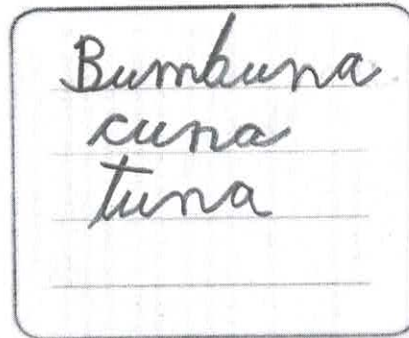 Bumbuna
cuna
tuna